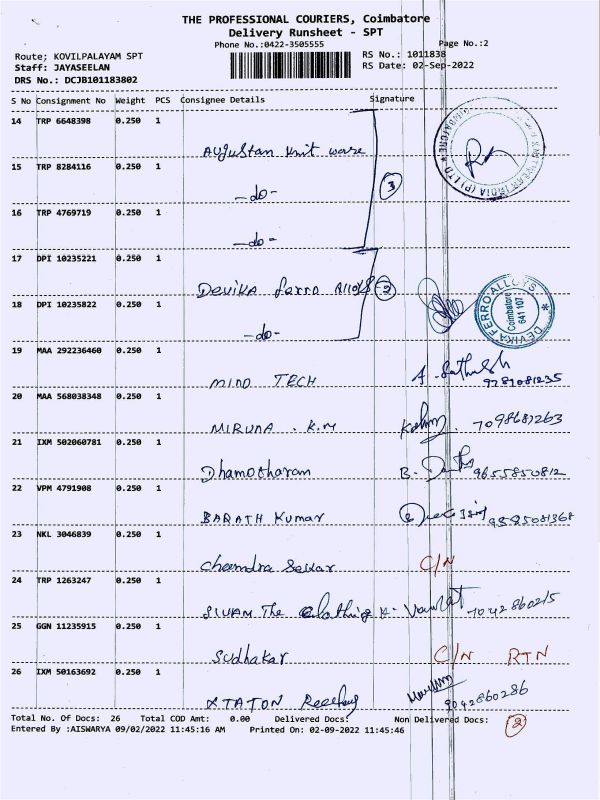 THE PROFESSIONAL COURIERS, Coimbatore
Delivery Runsheet - SPT
Phone No.:0422-3505555 Page No.:2
Route; KOVILPALAYAM SPT RS No.: 1011838
Staff: JAYASEELAN RS Date: 02-Sep-2022
DRS No.: DCJB101183802
S No Consignment No Weight PCS Consignee Details Signature
14 TRP 6648398 0.250 1
Augustan knit ware
15 TRP 8284116 0.250 1
-do-
3
16 TRP 4769719 0.250 1
-do-
17 DPI 10235221 0.250 1
DEVIKA ferro Alloys 2
18 DPI 10235822 0.250 1
-do-
DEVIKA FERRO ALLOYS
Coimbatore
641 107
19 MAA 292236460 0.250 1
MIND TECH A. Sathish
9789081235
20 MAA 568038348 0.250 1
MIRUNA . K.M 7098687263
21 IXM 502060781 0.250 1
Dhamotharam B. 9655850812
22 VPM 4791908 0.250 1
BARATH Kumar 9585081368
23 NKL 3046839 0.250 1
Chandra Sekar C/N
24 TRP 1263247 0.250 1
SIVAM The Clothing 7042860215
25 GGN 11235915 0.250 1
Sudhakar C/N RTN
26 IXM 50163692 0.250 1
9042860286
Total No. Of Docs: 26 Total COD Amt: 0.00 Delivered Docs: Non Delivered Docs: 2
Entered By :AISWARYA 09/02/2022 11:45:16 AM Printed On: 02-09-2022 11:45:46